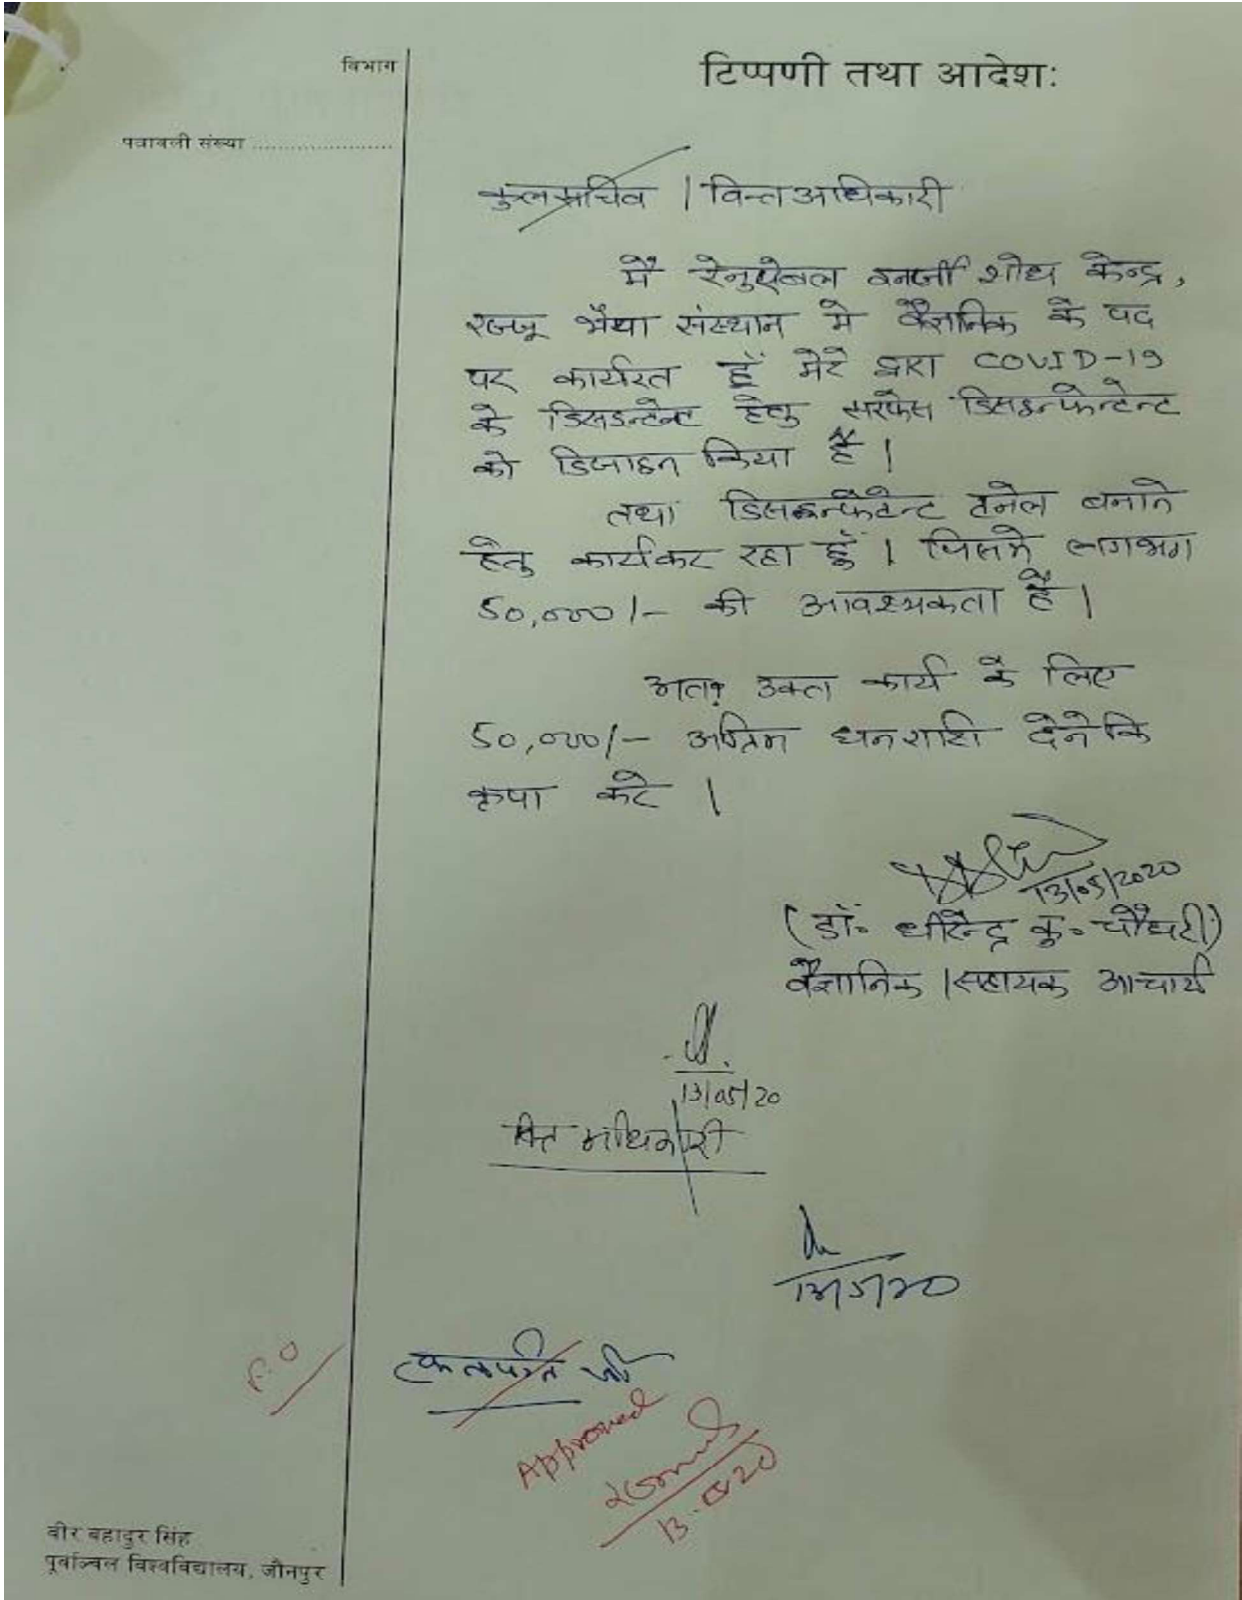 विभाग
टिप्पणी तथा आदेश:
पत्रावली संख्या ......................
कुलसचिव / वित्त अधिकारी
मैं रेनुऐबल एनर्जी शोध केन्द्र,
रज्जू भैया संस्थान मे वैज्ञानिक के पद
पर कार्यरत हूँ मेरे द्वारा COVID-19
के डिसइन्टेन्ट हेतु सरफेस डिसइन्फेन्टेन्ट
को डिजाइन किया है |
तथा डिसइन्फेटेन्ट टनेल बनाने
हेतु कार्यकर रहा हूँ | जिसमे लगभग
50,000/- की आवश्यकता है |
अतः उक्त कार्य के लिए
50,000/- अग्रिम धनराशी देने कि
कृपा करे |
13/05/2020
(डॉ॰ धीरेन्द्र कु॰ चौधरी)
वैज्ञानिक / सहायक आचार्य
13/05/20
वित्त अधिकारी
13/5/20
F.O
कुलपति जी
Approved
13.05.20
वीर बहादुर सिंह
पूर्वाञ्चल विश्वविद्यालय, जौनपुर